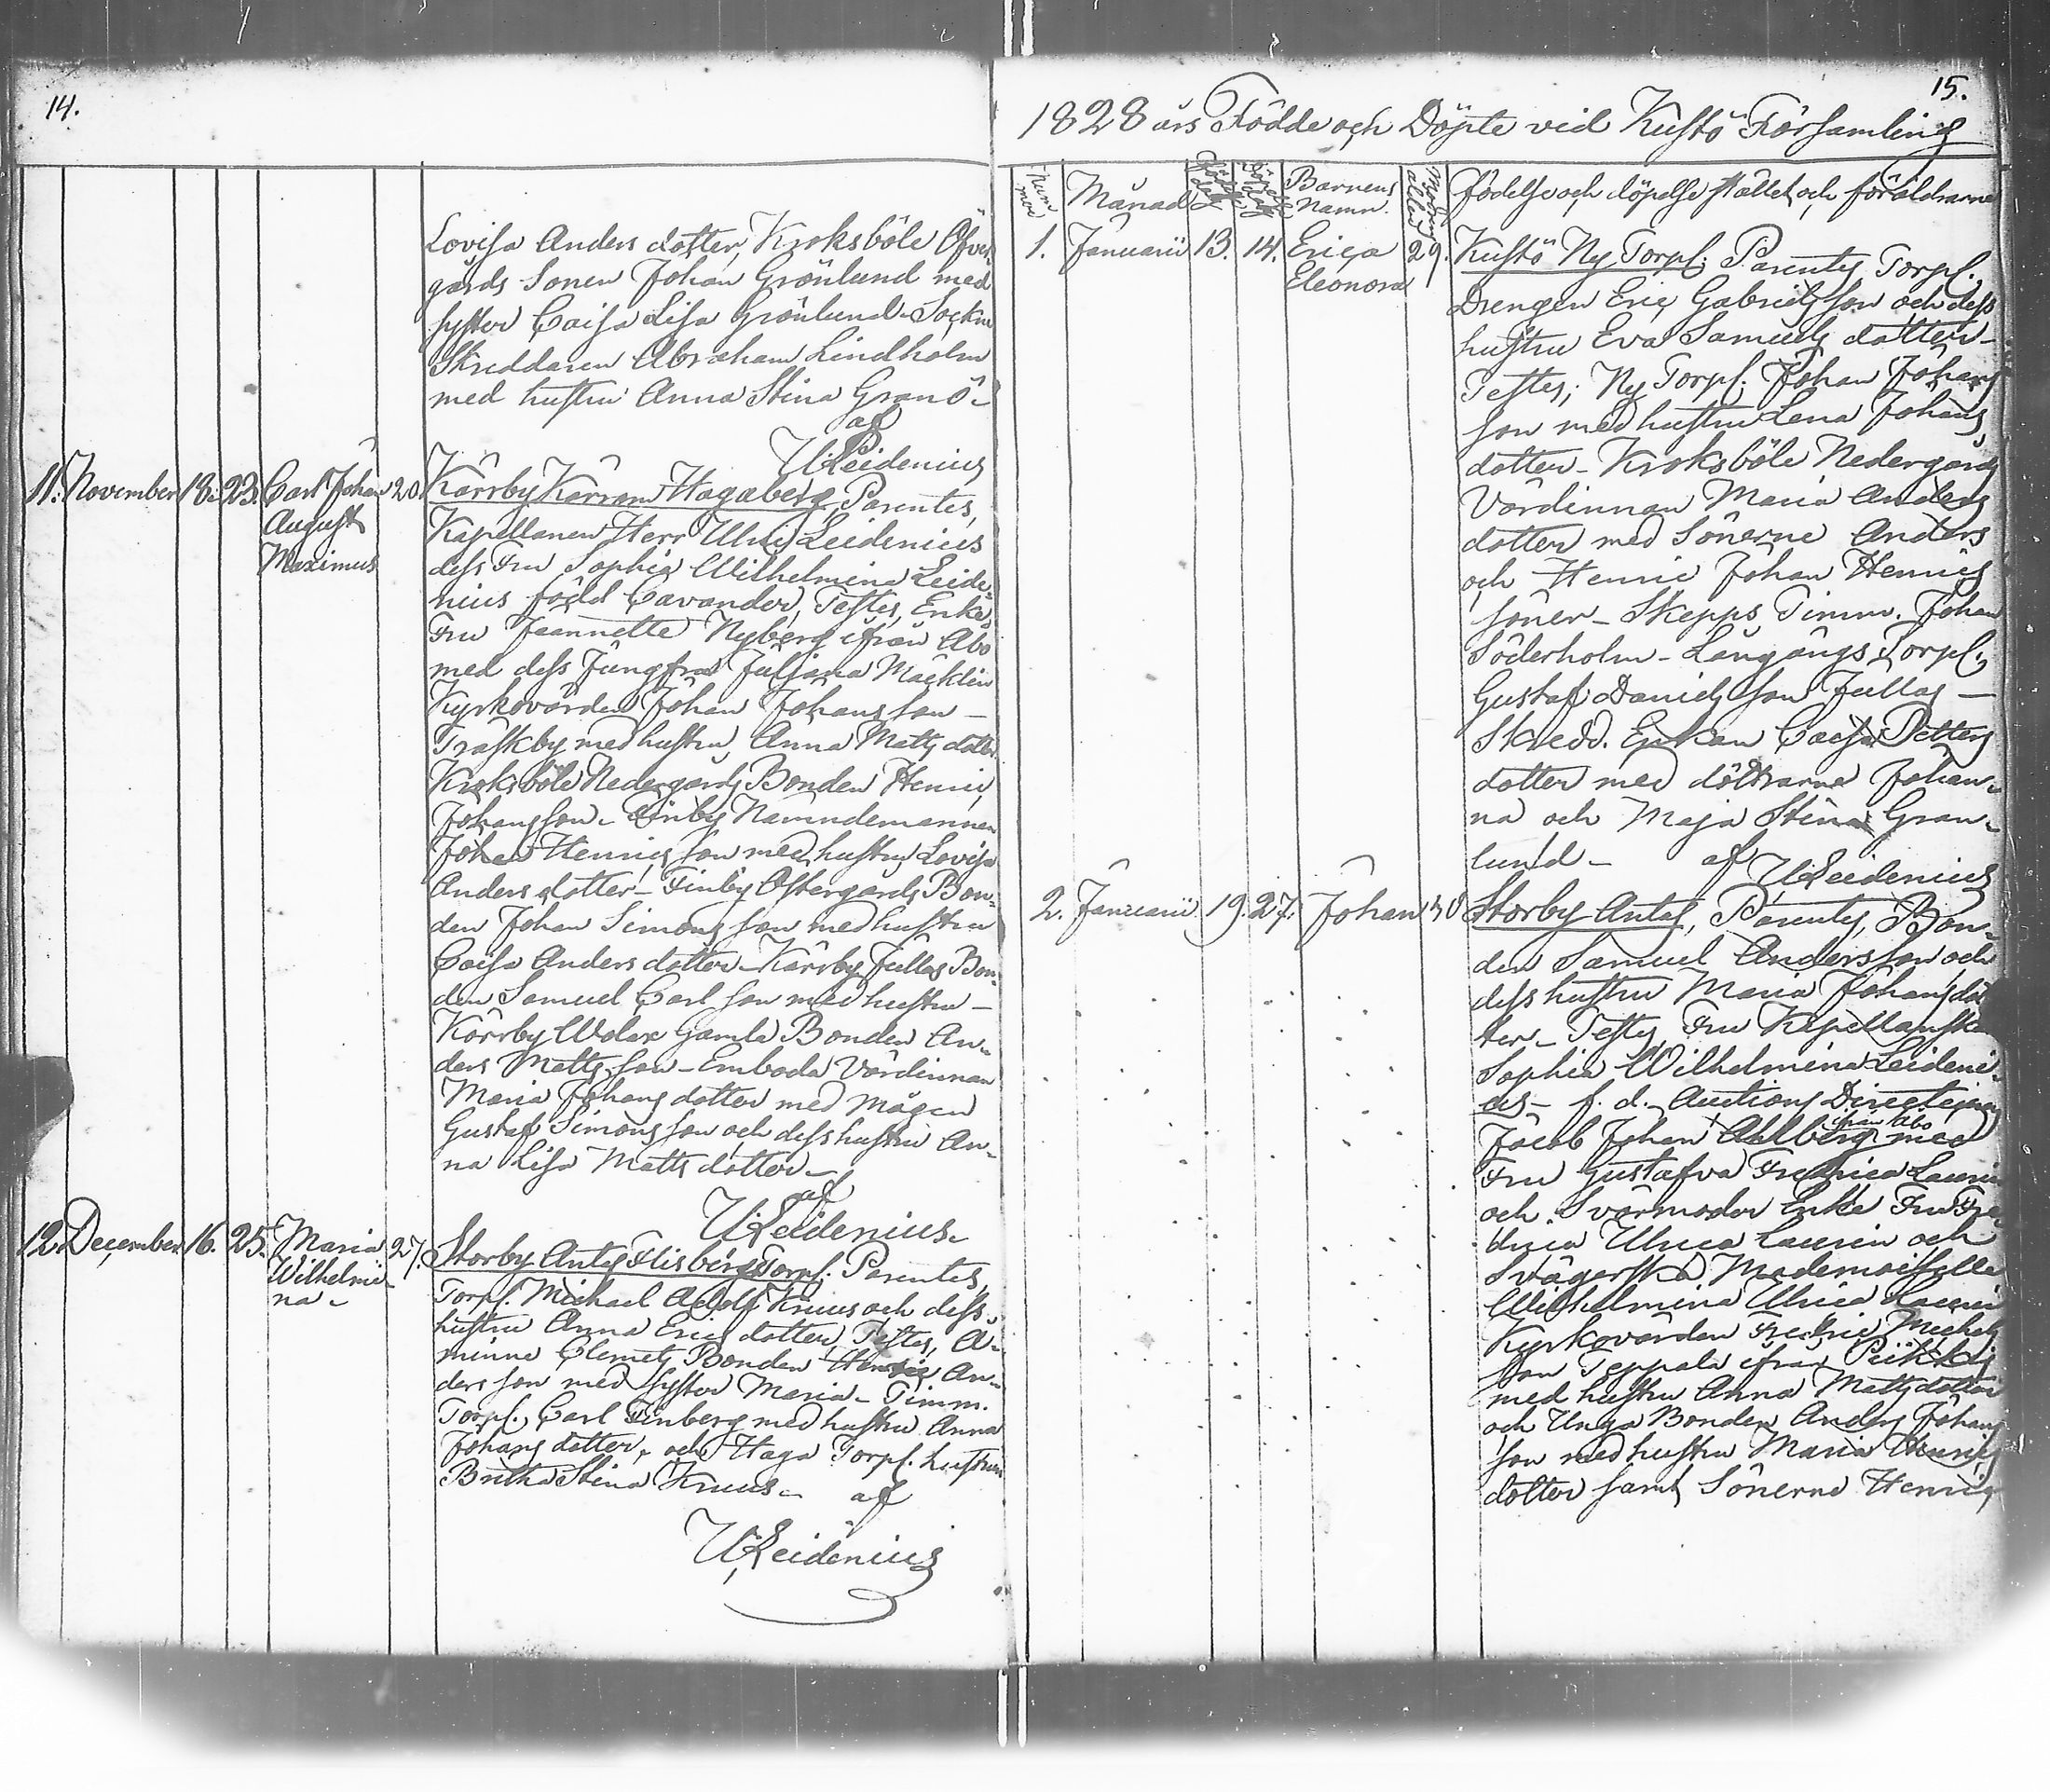 14.
Lovisa Anders dotter, Kroksböle Öfver
gårds Sonen Johan Grönlund med
syster Caisa Lisa Grönlund Sockne
Skreddaren Abraham Lindholm
med hustru Anna Stina Granö
af
U Leidenius
11. November 18. 23. Carl Johan 20. Kärrby Karron Hagaberg, Parentes,
August Kapellanen Herr Ulric Leidenius
Maximus dess Fru Sophia Wilhelmina Leide-
nius född Cavander, Testes, Enke
Fru Jeannette Nyberg ifrån Åbo
med dess Jungfru Juliana Mäcklin
Kyrkovärden Johan Johansson
Träskby med hustru, Anna Matts dotter
Kroksböle Nedergårds Bonden Henric
Johansson - Finby Nämndemannen
Johan Henrics son med hustru Lovisa
Anders dotter - Finby Östergårds Bon-
den Johan Simons son med hustru
Caisa Anders dotter - Kärrby Jullas Bon-
den Samuel Carl son med hustru -
Kärrby Wolax Gamla Bonden An-
ders Matts son - Emboda Värdinnan
Maria Johans dotter med mågen
Gustaf Simons son och dess hustru An-
na Lisa Matts dotter -
af
U Leidenius.
12. December 16. 25. Maria 27. Storby Antes Flisbergs Torp. Parentes,
Wilhelmi- Torp. Michael Adolf Kruus och dess
na hustru Anna Erics dotter, Testes, A-
minne Clemets Bonden Henric An-
ders son med syster Maria - Timm.
Torp. Carl Finberg med hustru Anna
Johans dotter, och Haga Torp. hustrun
Britha Stina Kruus - af
U Leidenius
15.
1828 års Födde och Döpte vid Kustö Församling
Num mer Månad Födelse dag Döpelse dag Barnens Namn. Modrens ålder Födelse och döpelse stället och föräldrarne
1. Januarii 13. 14. Erica 29. Kustö Ny Torp. Parentes Torp.
Eleonora Drengen Eric Gabriels son och dess
hustru Eva Samuels dotter -
Testes; Ny Torp. Johan Johans
son med hustru Lena Johans
dotter - Kroksböle Nedergårds
Värdinnan Maria Anders
dotter med Sönerne Anders
och Henric Johan Henrics
söner - Skepps Timm. Johan
Söderholm - Långängs Torp.
Gustaf Daniels son Jullas -
Skredd. Enkan Caisa Petters
dotter med döttrarne Johan-
na och Maja Stina Gran-
lund - af U Leidenius
2. Januarii 19. 27. Johan 30 Storby Antes, Parentes, Bon-
den Samuel Andersson och
dess hustru Maria Johans dot
ter - Testes Fru Kapellanskan
Sophia Wilhelmina Leideni-
us - f. d. Auctions Directeuren
ifrån Åbo
Jacob Johan Ahlberg med
Fru Gustafva Fredrica Laurin
och Svärmoder Enke Fru Fre-
drica Ulrica Laurin och
Svägerska Mademoiselle
Wilhelmina Ulrica Laurin
Kyrkovärden Fredric Michels
son Teppala ifrån Piikkis
med hustru Anna Matts dotter
och Unga Bonden Anders Johans
son med hustru Maria Henrics
dotter samt Sönerne Henric